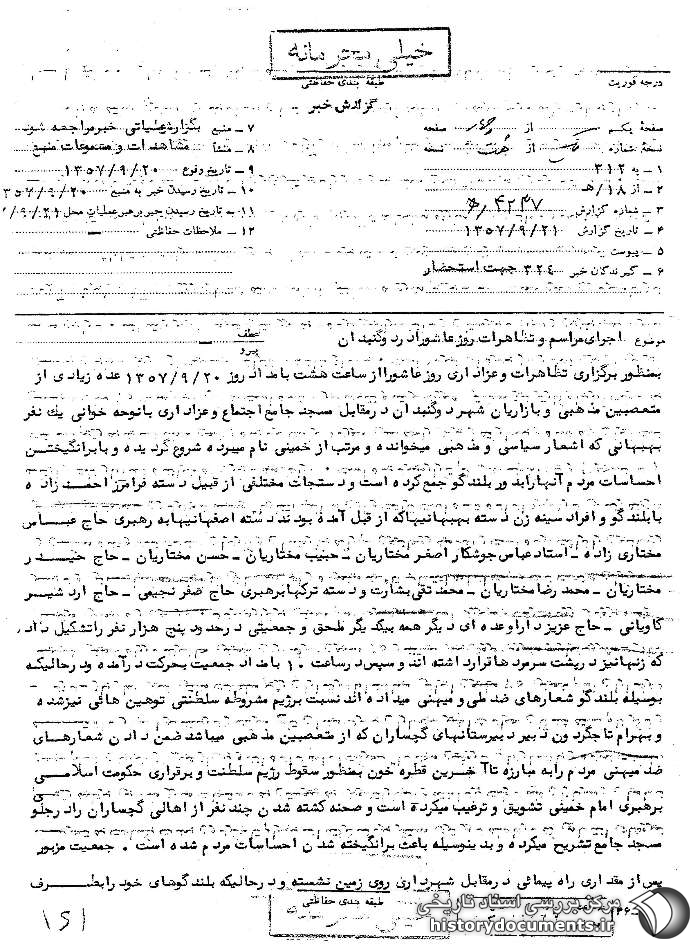 خیلی محرمانه
طبقه بندی حفاظتی
درجه فوریت
گزارش خبر
صفحهٔ یکم از صفحه
نسخهٔ شماره از نسخه
۱ ـ به ۳۱۲
۲ ـ از ۱۸/هـ
۳ ـ شماره گزارش ۴۲۴۷/هـ
۴ ـ تاریخ گزارش ۱۳۵۷/۹/۲۱
۵ ـ پیوست
۶ ـ گیرندگان خبر ۳۲۴ جهت استحضار
۷ ـ منبع بگزارش عملیاتی خبر مراجعه شود
۸ ـ منشأ مشاهدات و مسموعات منبع
۹ ـ تاریخ وقوع ۱۳۵۷/۹/۲۰
۱۰ ـ تاریخ رسیدن خبر به منبع ۳۵۷/۹/۲۰
۱۱ ـ تاریخ رسیدن خبر برهبر عملیات محل ۹/۲۱
۱۲ ـ ملاحظات حفاظتی ـ
موضوع اجرای مراسم و تظاهرات روز عاشورا در دوگنبدان
عطف
پیرو ـ
بمنظور برگزاری تظاهرات و عزاداری روز عاشورا از ساعت هشت بامداد روز ۱۳۵۷/۹/۲۰ عده زیادی از
متعصبین مذهبی و بازاریان شهر دوگنبدان در مقابل مسجد جامع اجتماع و عزاداری با نوحه خوانی یك نفر
بهبهانی که اشعار سیاسی و مذهبی میخوانده و مرتب از خمینی نام میبرده شروع گردیده و با برانگیختن
احساسات مردم آنها را بدور بلندگو جمع کرده است و دستجات مختلفی از قبیل دسته فرامرز احمدزاده
با بلندگو و افراد سینه زن دسته بهبهانیها که از قبل آمده بودند دسته اصفهانیها به رهبری حاج عباس
مختاری زاده ـ استاد عباس جوشکار اصغر مختاریان ـ حبیب مختاریان ـ حسن مختاریان ـ حاج حیدر
مختاریان ـ محمد رضا مختاریان ـ محمد تقی بشارت و دسته ترکها برهبری حاج صفر نجیمی ـ حاج ارد شیر
کاویانی ـ حاج عزیز دارا و عده ای دیگر همه بیکدیگر ملحق و جمعیتی در حدود پنج هزار نفر را تشکیل داد،
که زنها نیز در پشت سر مردها قرار داشته اند و سپس در ساعت ۱۰ بامداد جمعیت بحرکت درآمده و در حالیکه
بوسیله بلندگو شعارهای ضد ملی و میهنی میداده اند نسبت برژیم مشروطه سلطنتی توهین هائی نیز شده
و بهرام تاجگردون دبیر دبیرستانهای گچساران که از متعصبین مذهبی میباشد ضمن دادن شعارهای
ضد میهنی مردم را به مبارزه تا آخرین قطره خون بمنظور سقوط رژیم سلطنت و برقراری حکومت اسلامی
برهبری امام خمینی تشویق و ترغیب میکرده است و صحنه کشته شدن چند نفر از اهالی گچساران را در جلو
مسجد جامع تشریح میکرده و بدینوسیله باعث برانگیخته شدن احساسات مردم شده است . جمعیت مزبور
پس از مقداری راه پیمائی در مقابل شهرداری روی زمین نشسته و در حالیکه بلندگوهای خود را بطرف
طبقه بندی حفاظتی
مرکز بررسی اسناد تاریخی
historydocuments.ir